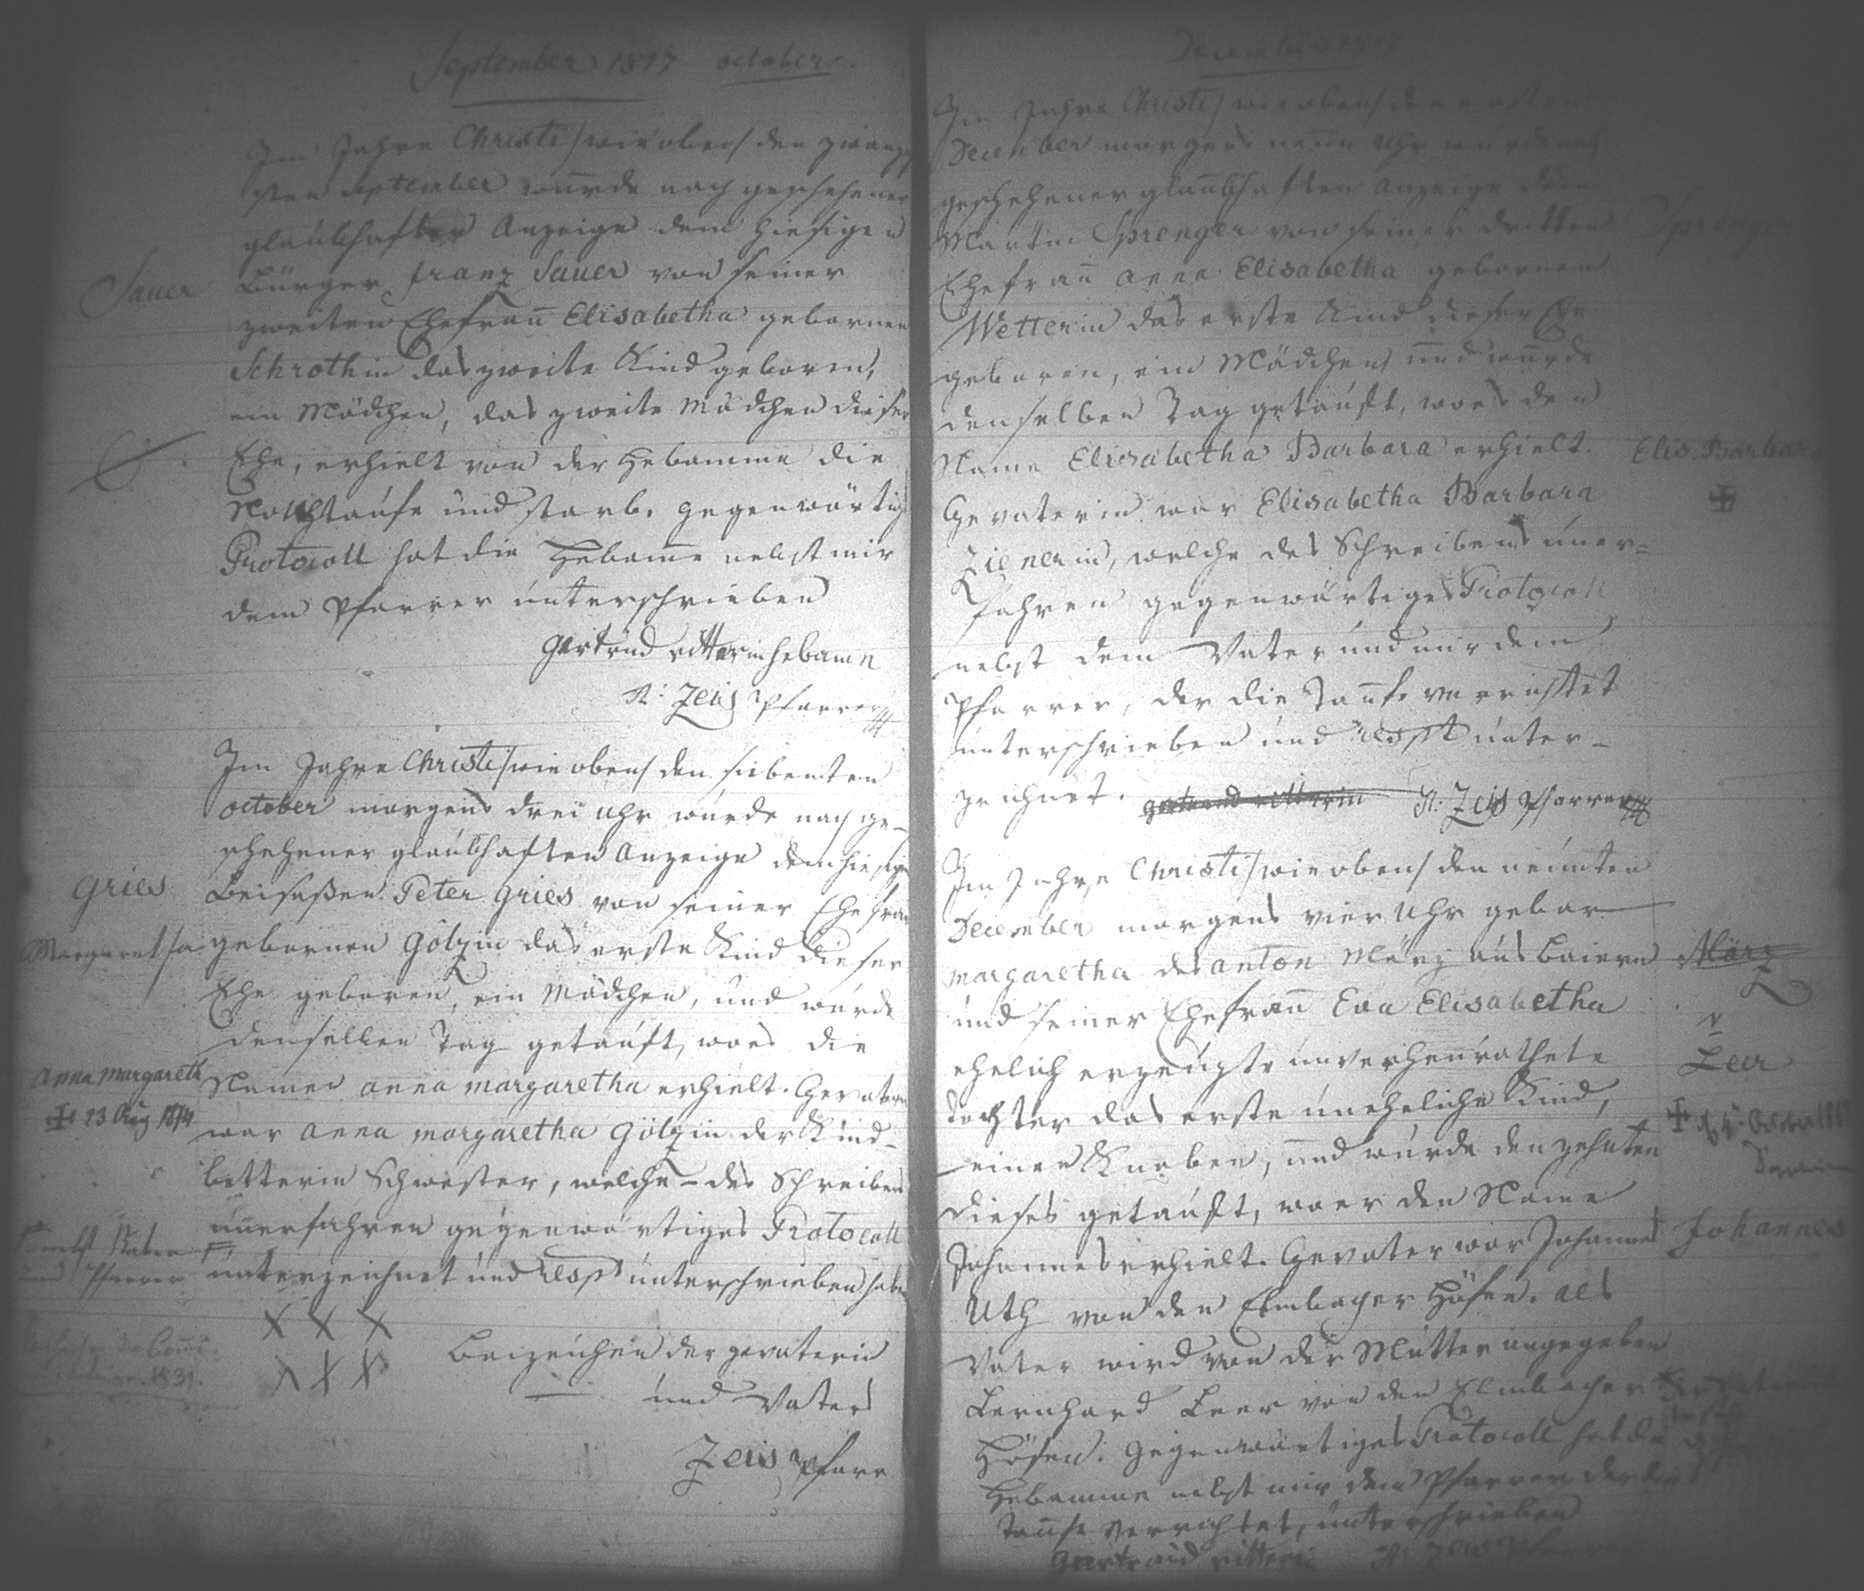 September 1817 october
Sauer
Im Jahre Christi /wie oben/ den zwanzig
sten september wurde nach geschehener
glaubhafter Anzeige dem hiesigen
Bürger franz Sauer von seiner
zweiten Ehefrau Elisabetha gebornen
Schrothin das zweite Kind geboren,
ein Mädchen, das zweite Mädchen dieser
Ehe, erhielt von der Hebamme die
Nothtaufe und starb. gegenwärtig
Protocoll hat die Hebame nebst mir
dem Pfarrer unterschrieben
gertrud ritterin hebamn
A: Zeis Pfarrer
Gries
Margaretha
Anna Margareth
23 Aug 1874
Im Jahre Christi /wie oben/ den siebenten
october morgens drei uhr wurde nach ge-
schehener glaubhaften Anzeige dem hiesigen
Beisaßen Peter Gries von seiner Ehefrau
gebornen Gölzin das erste Kind dieser
Ehe geboren, ein Mädchen, und wurde
denselben Tag getauft, wo es die
Namen anna margaretha erhielt. Gevaterin
war anna margaretha Gölzin der Kind-
betterin Schwester, welche des Schreibens
unerfahren gegenwärtiges Protocoll
nebst Vater
und Pfarrer
unterzeichnet und resp unterschrieben haben
X X X
X X X
Beizeichen der gevaterin
und Vaters
Zeis Pfarr
1831.
December 1817
Sprenger
Elis. Barbara
Im Jahre Christi /wie oben/ den ersten
December morgens neun Uhr wurde nach
geschehener glaubhaften Anzeige dem
Martin Sprenger von seiner dritten
Ehefrau anna Elisabetha gebornen
Wetterin das erste Kind dieser Ehe
geboren, ein Mädchen und wurde
denselben Tag getauft, wo es den
Name Elisabetha Barbara erhielt.
Gevaterin war Elisabetha Barbara
Zienerin, welche des Schreibens uner-
fahren gegenwärtiges Protocoll
nebst dem Vater und mir dem
Pfarrer, der die Taufe verrichtet
unterschrieben und respt unter-
zeichnet. gertraud ritterin A: Zeis Pfarrer
März
Leer
Johannes
Im Jahre Christi /wie oben/ den neunten
December morgens vier Uhr gebar
margaretha des anton März aus Baiern
und seiner Ehefrau Eva Elisabetha
ehelich erzeugte unverheurathete
Tochter das erste uneheliche Kind,
einen Knaben, und wurde den zehnten
dieses getauft, wo er den Name
Johannes erhielt. Gevater war Johannes
Uth von den Elmbacher Höfen. als
Vater wird von der Mutter angegeben
Bernhard Leer von den Elmbacher
Höfen. Gegenwärtiges Protocoll hat die
Hebamme nebst mir dem Pfarrer der die
Taufe verrichtet, unterschrieben
Gertraud ritterin A: Zeis